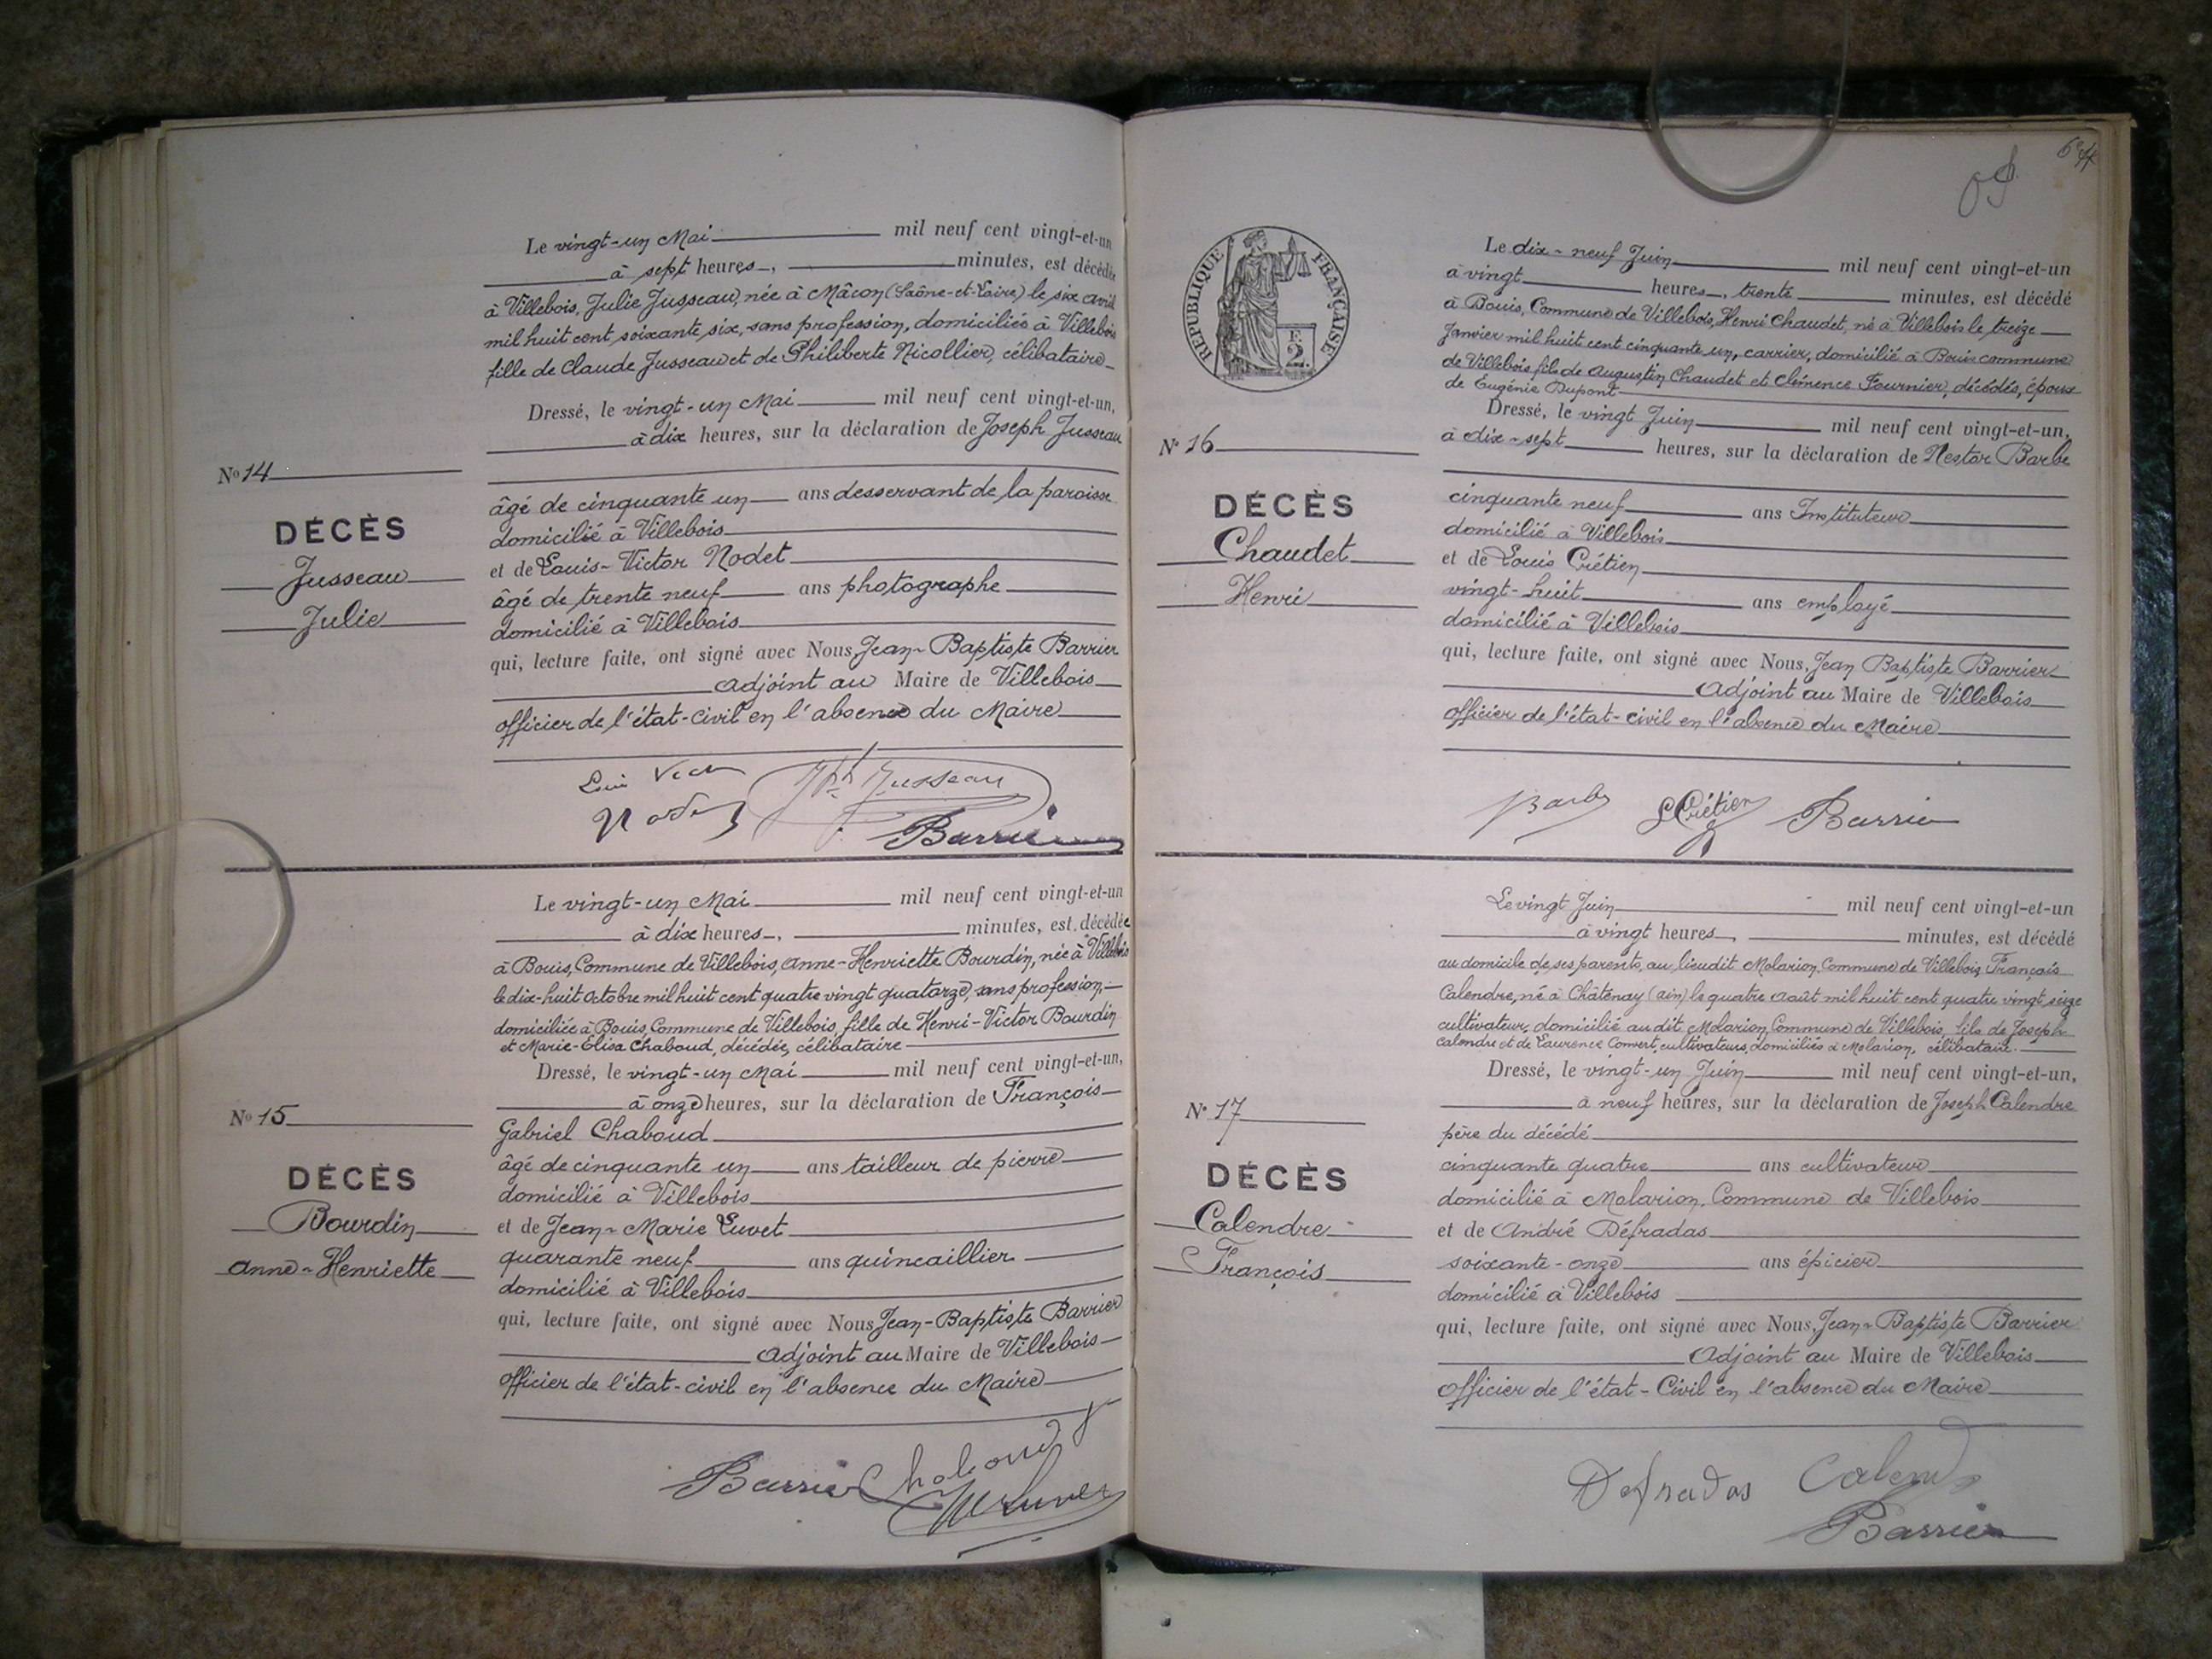 Le vingt-un Mai mil neuf cent vingt-et-un
à sept heures, minutes, est décédée
à Villebois, Julie Jusseau, née à Mâcon (Saône-et-Loire) le six avril
mil huit cent soixante six, sans profession, domiciliée à Villebois
fille de Claude Jusseau et de Philiberte Nicollier, célibataire
Dressé, le vingt-un Mai mil neuf cent vingt-et-un,
à dix heures, sur la déclaration de Joseph Jusseau
No 14
DÉCÈS
Jusseau
Julie
âgé de cinquante un ans desservant de la paroisse
domicilié à Villebois
et de Louis-Victor Nodet
âgé de trente neuf ans photographe
domicilié à Villebois
qui, lecture faite, ont signé avec Nous, Jean-Baptiste Barrier
adjoint au Maire de Villebois
officier de l'état-civil en l'absence du Maire
Jph Jusseau
Nodet
Barrier
Le vingt-un Mai mil neuf cent vingt-et-un
à dix heures, minutes, est décédée
à Bouis, Commune de Villebois, Anne-Henriette Bourdin, née à Villebois
le dix-huit Octobre mil huit cent quatre vingt quatorze, sans profession,
domiciliée à Bouis, Commune de Villebois, fille de Henri-Victor Bourdin
et Marie-Elisa Chaboud, décédée, célibataire
Dressé, le vingt-un Mai mil neuf cent vingt-et-un,
à onze heures, sur la déclaration de François
No 15
DÉCÈS
Bourdin
Anne-Henriette
Gabriel Chaboud
âgé de cinquante un ans tailleur de pierre
domicilié à Villebois
et de Jean-Marie Luvet
quarante neuf ans quincaillier
domicilié à Villebois
qui, lecture faite, ont signé avec Nous Jean-Baptiste Barrier
adjoint au Maire de Villebois
officier de l'état-civil en l'absence du Maire
Barrier Chaboud
Luvet
RÉPUBLIQUE FRANÇAISE
F.
2.
Le dix-neuf Juin mil neuf cent vingt-et-un
à vingt heures, trente minutes, est décédé
à Bouis, Commune de Villebois, Henri Chaudet, né à Villebois le treize
Janvier mil huit cent cinquante un, carrier, domicilié à Bouis commune
de Villebois fils de Augustin Chaudet et Clémence Fournier, décédés, époux
de Eugénie Dupont
Dressé, le vingt Juin mil neuf cent vingt-et-un,
à dix-sept heures, sur la déclaration de Nestor Barbe
No 16
DÉCÈS
Chaudet
Henri
cinquante neuf ans Instituteur
domicilié à Villebois
et de Louis Crétien
vingt-huit ans employé
domicilié à Villebois
qui, lecture faite, ont signé avec Nous, Jean Baptiste Barrier
Adjoint au Maire de Villebois
officier de l'état-civil en l'absence du Maire
Barbe LCrétien Barrier
Le vingt Juin mil neuf cent vingt-et-un
à vingt heures, minutes, est décédé
au domicile de ses parents, au lieudit Molarion, Commune de Villebois, François
Calendre, né à Châtenay (Ain) le quatre Août mil huit cent quatre vingt seize
cultivateur, domicilié au dit Molarion, Commune de Villebois, fils de Joseph
Calendre et de Laurence Convert, cultivateurs, domiciliés à Molarion, célibataire.
Dressé, le vingt-un Juin mil neuf cent vingt-et-un,
à neuf heures, sur la déclaration de Joseph Calendre
No 17
DÉCÈS
Calendre
François
père du décédé
cinquante quatre ans cultivateur
domicilié à Molarion, Commune de Villebois
et de André Défradas
soixante-onze ans épicier
domicilié à Villebois
qui, lecture faite, ont signé avec Nous, Jean-Baptiste Barrier
Adjoint au Maire de Villebois
officier de l'état-Civil en l'absence du Maire
Defradas Calendre
Barrier